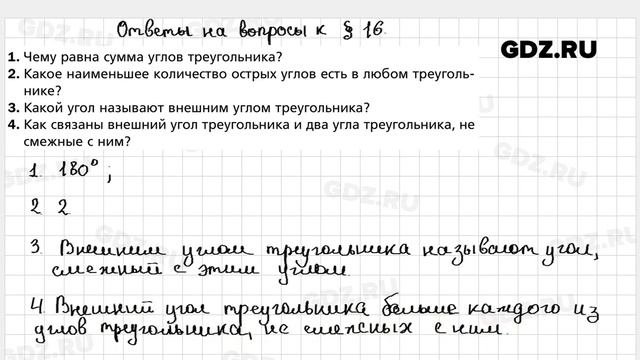 Ответы на вопросы к § 16.
GDZ.RU
1. Чему равна сумма углов треугольника?
2. Какое наименьшее количество острых углов есть в любом треуголь-
нике?
3. Какой угол называют внешним углом треугольника?
4. Как связаны внешний угол треугольника и два угла треугольника, не
смежные с ним?
1. 180°;
2. 2
3. Внешним углом треугольника называют угол,
смежный с этим углом.
4. Внешний угол треугольника больше каждого из
углов треугольника, не смежных с ним.